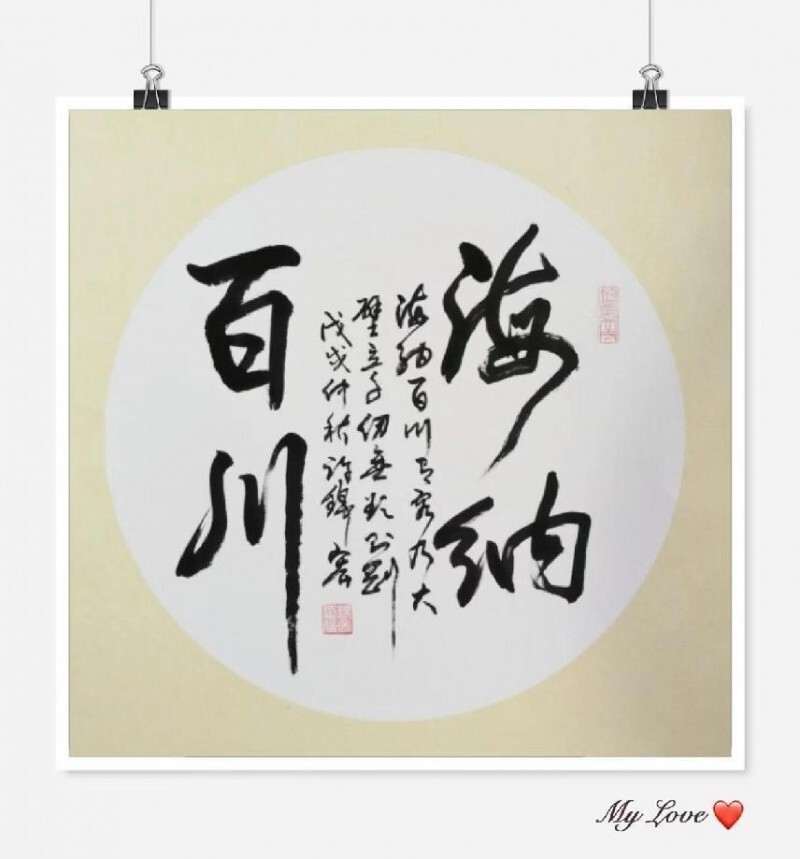 海纳
百川
海纳百川有容乃大
壁立千仞無欲则剛
戊戌仲秋许錦宏
My Love